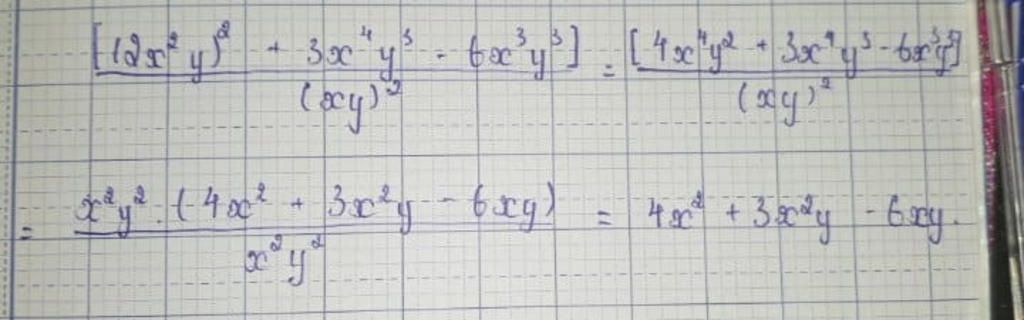 [(2x²y)² + 3x⁴y³ - 6x³y³] / (xy)² = [4x⁴y² + 3x⁴y³ - 6x³y³] / (xy)²
= x²y² · (4x² + 3x²y - 6xy) / x²y² = 4x² + 3x²y - 6xy.